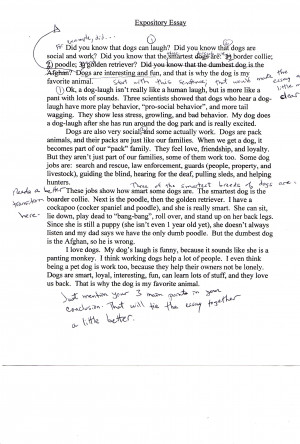 Expository Essay
Did you know that dogs can laugh? Did you know that dogs are
social and work? Did you know that the smartest dogs are: 1) border collie;
2) poodle; 3) golden retriever? Did you know that the dumbest dog is the
Afghan? Dogs are interesting and fun, and that is why the dog is my
favorite animal.
Start with this sentence; that would make the essay a little more clear.
Ok, a dog-laugh isn't really like a human laugh, but is more like a
pant with lots of sounds. Three scientists showed that dogs who hear a dog-
laugh have more play behavior, "pro-social behavior", and more tail
wagging. They show less stress, growling, and bad behavior. My dog does
a dog-laugh after she has run around the dog park and is really excited.
Dogs are also very social, and some actually work. Dogs are pack
animals, and their packs are just like our families. When we get a dog, it
becomes part of our "pack" family. They feel love, friendship, and loyalty.
But they aren't just part of our families, some of them work too. Some dog
jobs are: search and rescue, law enforcement, guards (people, property, and
livestock), guiding the blind, hearing for the deaf, pulling sleds, and helping
hunters.
Three of the smartest breeds of dogs are...
Needs a better
transition
here.
These jobs show how smart some dogs are. The smartest dog is the
boarder collie. Next is the poodle, then the golden retriever. I have a
cockapoo (cocker spaniel and poodle), and she is really smart. She can sit,
lie down, play dead to "bang-bang", roll over, and stand up on her back legs.
Since she is still a puppy (she isn't even 1 year old yet), she doesn't always
listen and my dad says we have the only dumb poodle. But the dumbest dog
is the Afghan, so he is wrong.
I love dogs. My dog's laugh is funny, because it sounds like she is a
panting monkey. I think working dogs help a lot of people. I even think
being a pet dog is work too, because they help their owners not be lonely.
Dogs are smart, loyal, interesting, fun, can learn lots of stuff, and they love
us back. That is why the dog is my favorite animal.
Just mention your 3 main points in your
conclusion. That will tie the essay together
a little better.